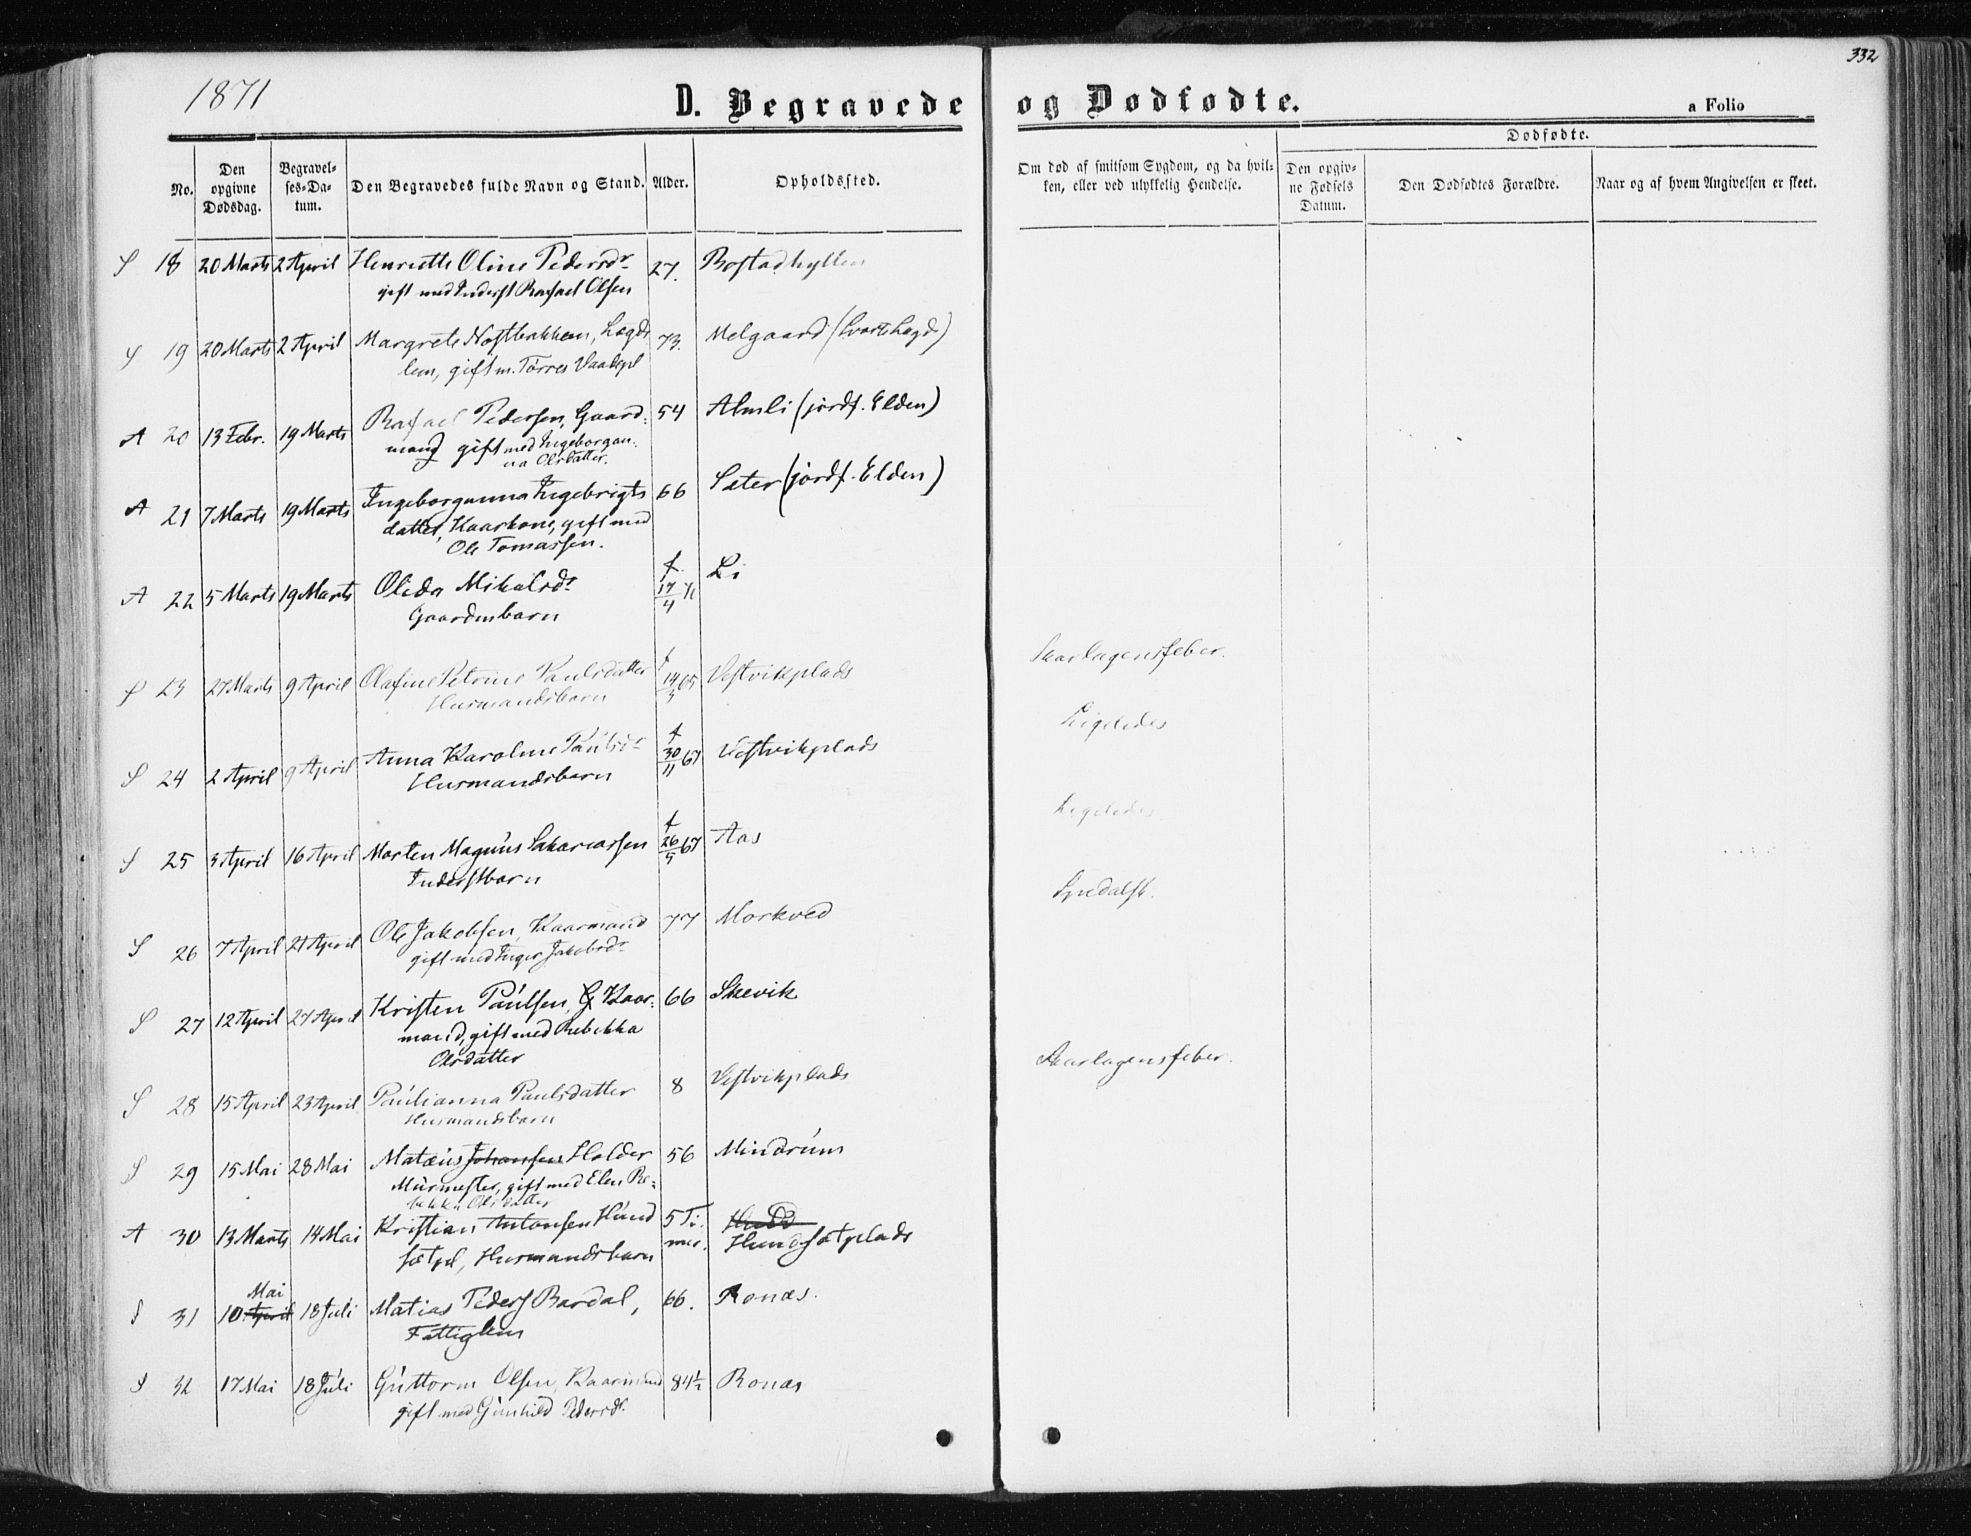 1871
332
D. Begravede og Dødfødte.
a Folio
No.
Den opgivne Dødsdag.
Begravelses-Datum.
Den Begravedes fulde Navn og Stand.
Alder.
Opholdssted.
Om død af smitsom Sygdom, og da hvilken, eller ved ulykkelig Hendelse.
Dødfødte.
Den opgivne Fødsels Datum.
Den Dødfødtes Forældre.
Naar og af hvem Angivelsen er skeet.
S 18 20 Marts 2 April Henriette Oline Pedersdr 27. Bostadhylla
gift med Inderst Rafael Olsen
S 19 20 Marts 2 April Margrete Nostbakken, Lægds 73. Melgaard
lem, gift m. Tørres Vaadspl
A 20 13 Febr. 19 Marts Rafael Pedersen, Gaard- 54 Almli (jordf. Elden)
mand gift med Ingeborgan-
na Olsdatter.
A 21 7 Marts 19 Marts Ingeborganna Ingebrigts 66 Sæter (jordf. Elden)
datter, Kaarkone, gift med
Ole Tomassen.
A 22 5 Marts 19 Marts Olida Mikalsdr f. 17/4 71 Li
Gaardmbarn
S 23 27 Marts 9 April Olafine Petrine Paulsdatter f. 14/5 65 Vestvikplads Skarlagensfeber.
Husmandsbarn
S 24 2 April 9 April Anna Karoline Paulsdr f 30/11 67 Vestvikplads Ligeledes
Husmandsbarn
S 25 3 April 16 April Morten Magnus Sakariassen f 26/5 67 Aas Ligeledes
Inderstbarn
S 26 7 April 21 April Ole Jakobsen, Kaarmand 77 Morkved Spedalsk.
gift med Inger Jakobsdr
S 27 12 April 27 April Kristen Paulsen, G Kaar- 66 Skevik
mand, gift med Rebekka
Olsdatter
S 28 15 April 23 April Paulianna Paulsdatter 8 Vestvikplads Skarlagensfeber.
Husmandsbarn
S 29 15 Mai 28 Mai Matæus Johansen Holder 56 Mindrum
Murmester, gift med Elen Re-
bekka Olsdatter
A 30 13 Marts 14 Mai Kristian Antonsen Hund 5 Ti- Hudd
sætpl, Husmandsbarn mer. Hundsætplads
Mai
S 31 10 April 18 Juli Matias Peders Bardal, 66. Ronæs.
Fattiglem
S 32 17 Mai 18 Juli Guttorm Olsen, Kaarmand 84½ Ronæs
gift med Gunhild Pedersdr.